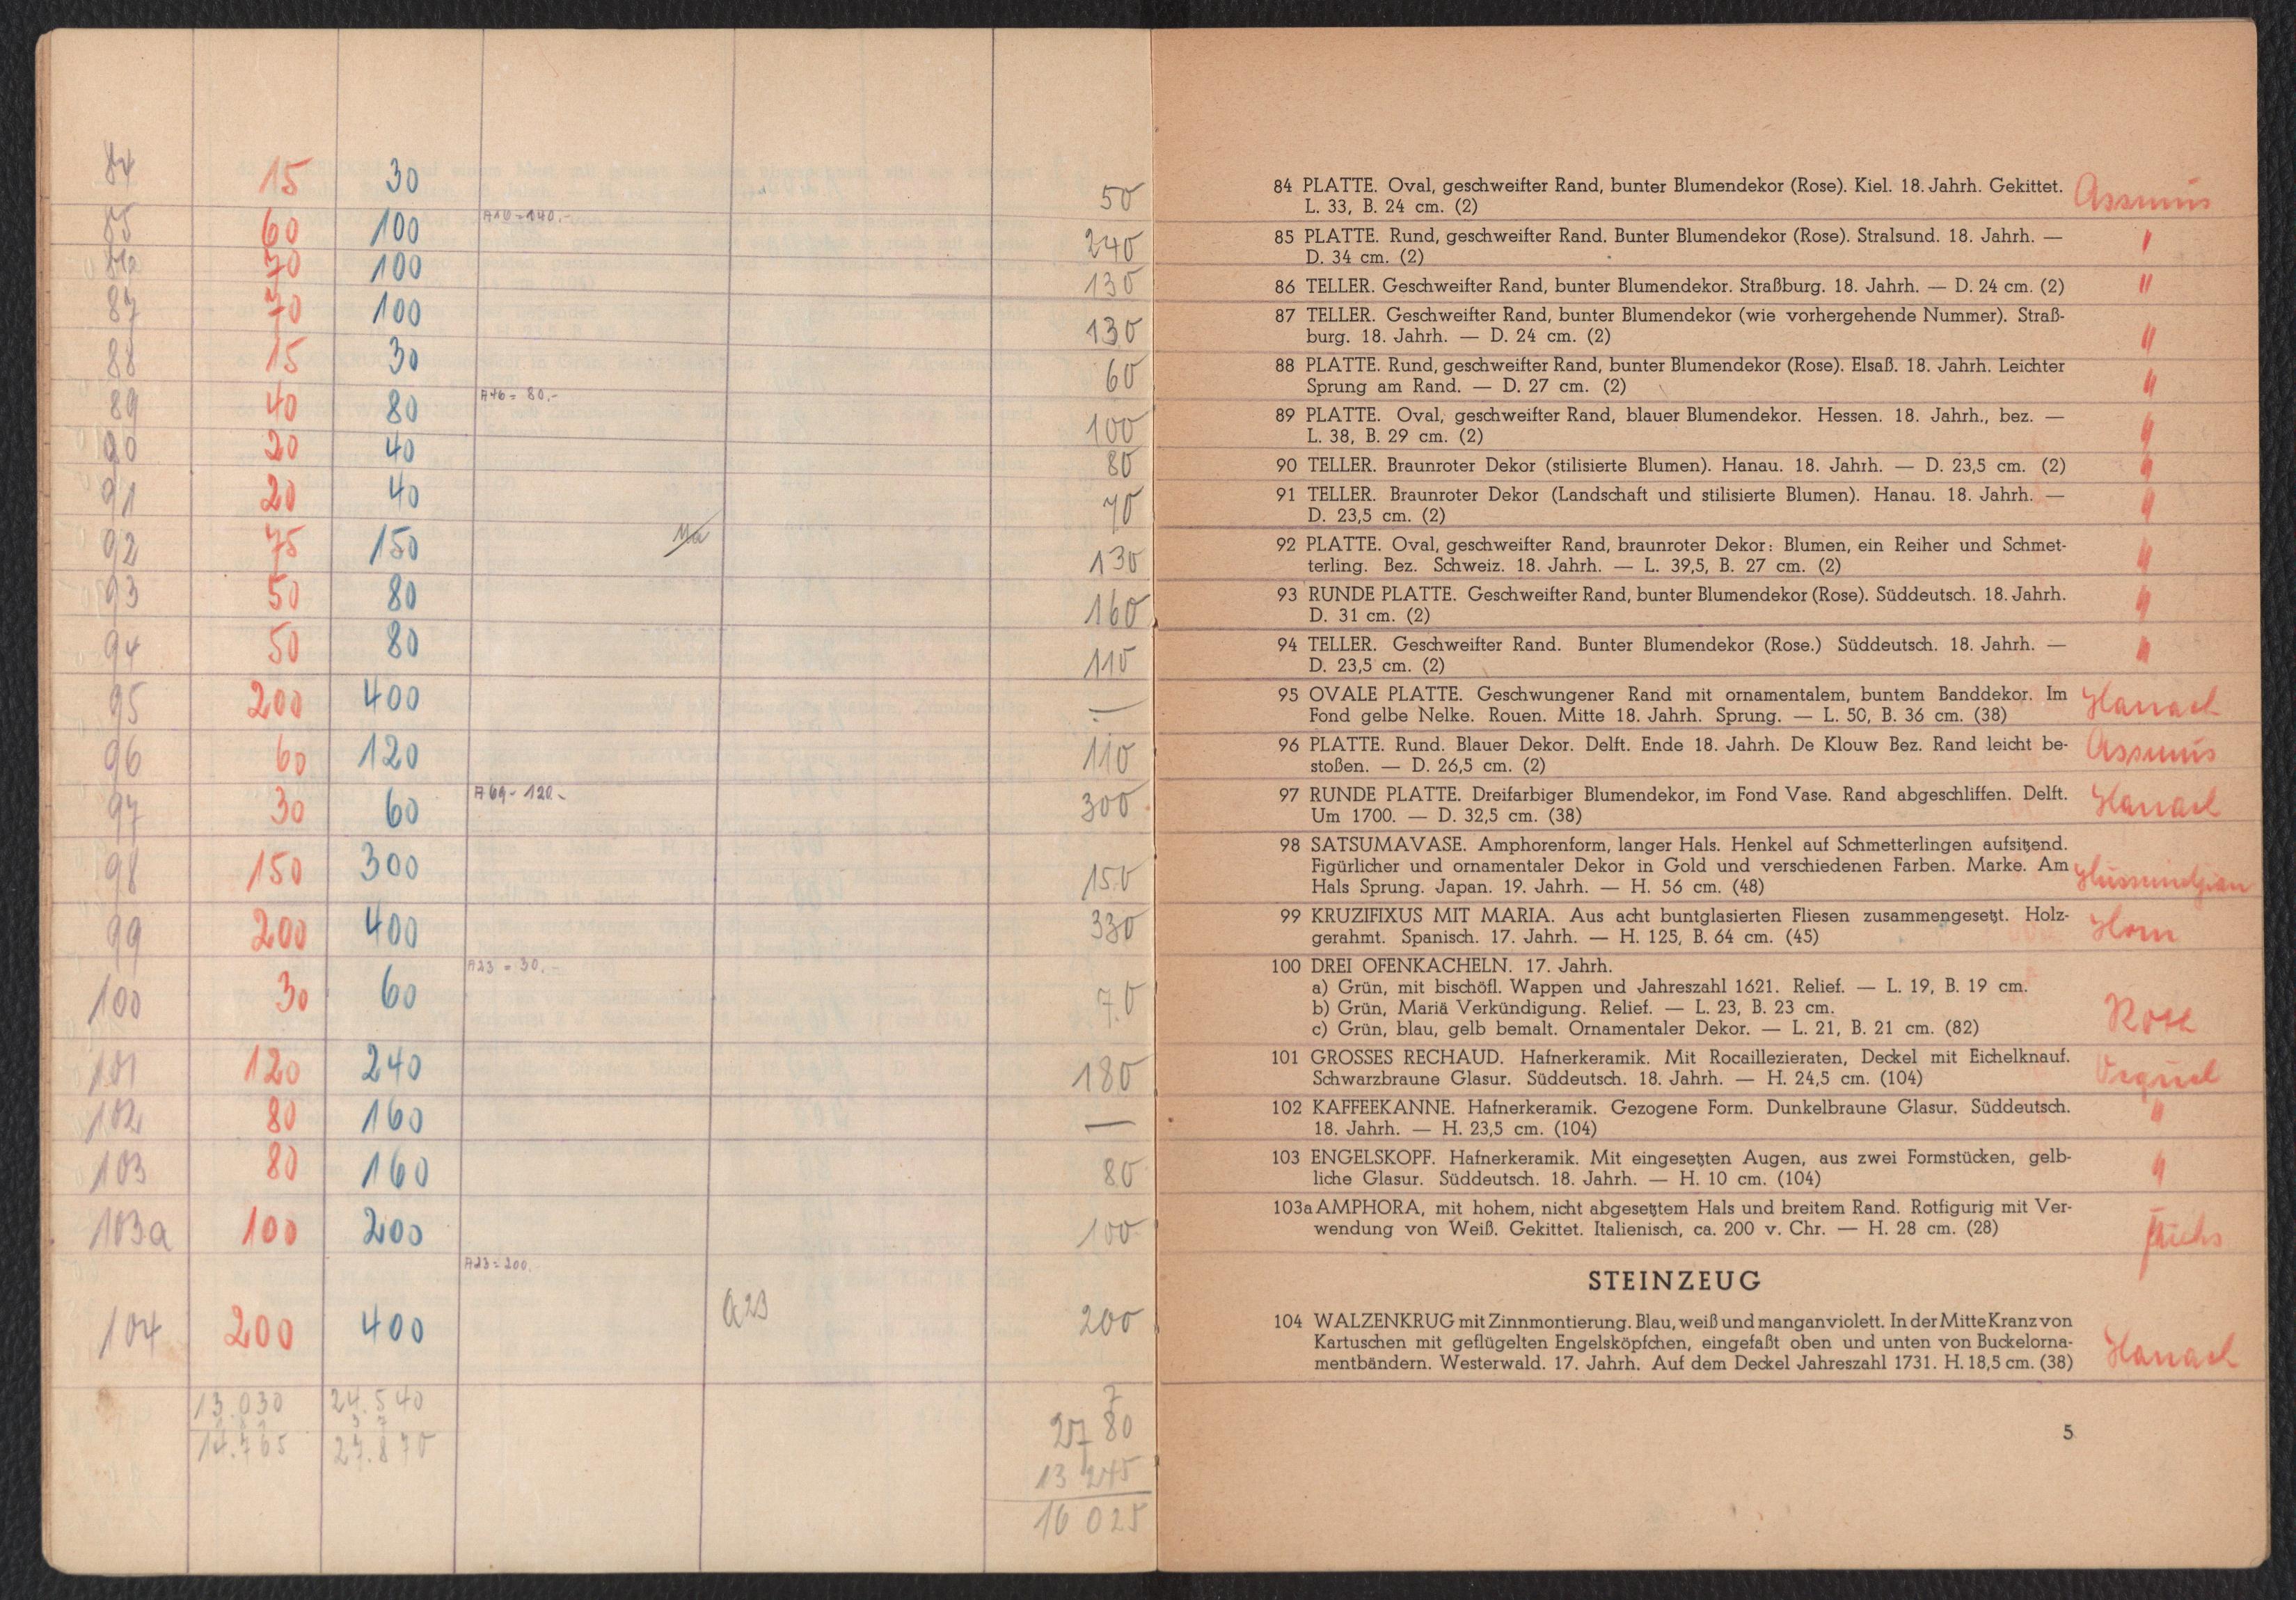 84 15 30 50
85 60 100 A16=140.- 240
86 70 100 130
87 70 100 130
88 15 30 60
89 40 80 A46= 80.- 100
90 20 40 80
91 20 40 70
92 75 150 130
93 50 80 160
94 50 80 110
95 200 400 —
96 60 120 110
97 30 60 A69- 120.- 300
98 150 300 150
99 200 400 330
100 30 60 A23 = 30.- 70
101 120 240 180
102 80 160 —
103 80 160 80
103a 100 200 100
A23=200.
104 200 400 A23 200
13.030 24.540
14.765 27.870
2780
13 245
16 025
84 PLATTE. Oval, geschweifter Rand, bunter Blumendekor (Rose). Kiel. 18. Jahrh. Gekittet. Assmus
L. 33, B. 24 cm. (2)
85 PLATTE. Rund, geschweifter Rand. Bunter Blumendekor (Rose). Stralsund. 18. Jahrh. — "
D. 34 cm. (2)
86 TELLER. Geschweifter Rand, bunter Blumendekor. Straßburg. 18. Jahrh. — D. 24 cm. (2) "
87 TELLER. Geschweifter Rand, bunter Blumendekor (wie vorhergehende Nummer). Straß-
burg. 18. Jahrh. — D. 24 cm. (2) "
88 PLATTE. Rund, geschweifter Rand, bunter Blumendekor (Rose). Elsaß. 18. Jahrh. Leichter
Sprung am Rand. — D. 27 cm. (2) "
89 PLATTE. Oval, geschweifter Rand, blauer Blumendekor. Hessen. 18. Jahrh., bez. —
L. 38, B. 29 cm. (2) "
90 TELLER. Braunroter Dekor (stilisierte Blumen). Hanau. 18. Jahrh. — D. 23,5 cm. (2) "
91 TELLER. Braunroter Dekor (Landschaft und stilisierte Blumen). Hanau. 18. Jahrh. —
D. 23,5 cm. (2) "
92 PLATTE. Oval, geschweifter Rand, braunroter Dekor: Blumen, ein Reiher und Schmet-
terling. Bez. Schweiz. 18. Jahrh. — L. 39,5, B. 27 cm. (2) "
93 RUNDE PLATTE. Geschweifter Rand, bunter Blumendekor (Rose). Süddeutsch. 18. Jahrh.
D. 31 cm. (2) "
94 TELLER. Geschweifter Rand. Bunter Blumendekor (Rose.) Süddeutsch. 18. Jahrh. —
D. 23,5 cm. (2) "
95 OVALE PLATTE. Geschwungener Rand mit ornamentalem, buntem Banddekor. Im Harrach
Fond gelbe Nelke. Rouen. Mitte 18. Jahrh. Sprung. — L. 50, B. 36 cm. (38)
96 PLATTE. Rund. Blauer Dekor. Delft. Ende 18. Jahrh. De Klouw Bez. Rand leicht be- Assmus
stoßen. — D. 26,5 cm. (2)
97 RUNDE PLATTE. Dreifarbiger Blumendekor, im Fond Vase. Rand abgeschliffen. Delft. Harrach
Um 1700. — D. 32,5 cm. (38)
98 SATSUMAVASE. Amphorenform, langer Hals. Henkel auf Schmetterlingen aufsitzend.
Figürlicher und ornamentaler Dekor in Gold und verschiedenen Farben. Marke. Am
Hals Sprung. Japan. 19. Jahrh. — H. 56 cm. (48)
99 KRUZIFIXUS MIT MARIA. Aus acht buntglasierten Fliesen zusammengesetzt. Holz- Horn
gerahmt. Spanisch. 17. Jahrh. — H. 125, B. 64 cm. (45)
100 DREI OFENKACHELN. 17. Jahrh.
a) Grün, mit bischöfl. Wappen und Jahreszahl 1621. Relief. — L. 19, B. 19 cm.
b) Grün, Mariä Verkündigung. Relief. — L. 23, B. 23 cm.
c) Grün, blau, gelb bemalt. Ornamentaler Dekor. — L. 21, B. 21 cm. (82)
101 GROSSES RECHAUD. Hafnerkeramik. Mit Rocaillezieraten, Deckel mit Eichelknauf.
Schwarzbraune Glasur. Süddeutsch. 18. Jahrh. — H. 24,5 cm. (104)
102 KAFFEEKANNE. Hafnerkeramik. Gezogene Form. Dunkelbraune Glasur. Süddeutsch. "
18. Jahrh. — H. 23,5 cm. (104)
103 ENGELSKOPF. Hafnerkeramik. Mit eingesetzten Augen, aus zwei Formstücken, gelb- "
liche Glasur. Süddeutsch. 18. Jahrh. — H. 10 cm. (104)
103a AMPHORA, mit hohem, nicht abgesetztem Hals und breitem Rand. Rotfigurig mit Ver-
wendung von Weiß. Gekittet. Italienisch, ca. 200 v. Chr. — H. 28 cm. (28) Fuchs
STEINZEUG
104 WALZENKRUG mit Zinnmontierung. Blau, weiß und manganviolett. In der Mitte Kranz von
Kartuschen mit geflügelten Engelsköpfchen, eingefaßt oben und unten von Buckelorna-
mentbändern. Westerwald. 17. Jahrh. Auf dem Deckel Jahreszahl 1731. H. 18,5 cm. (38) Harrach
5